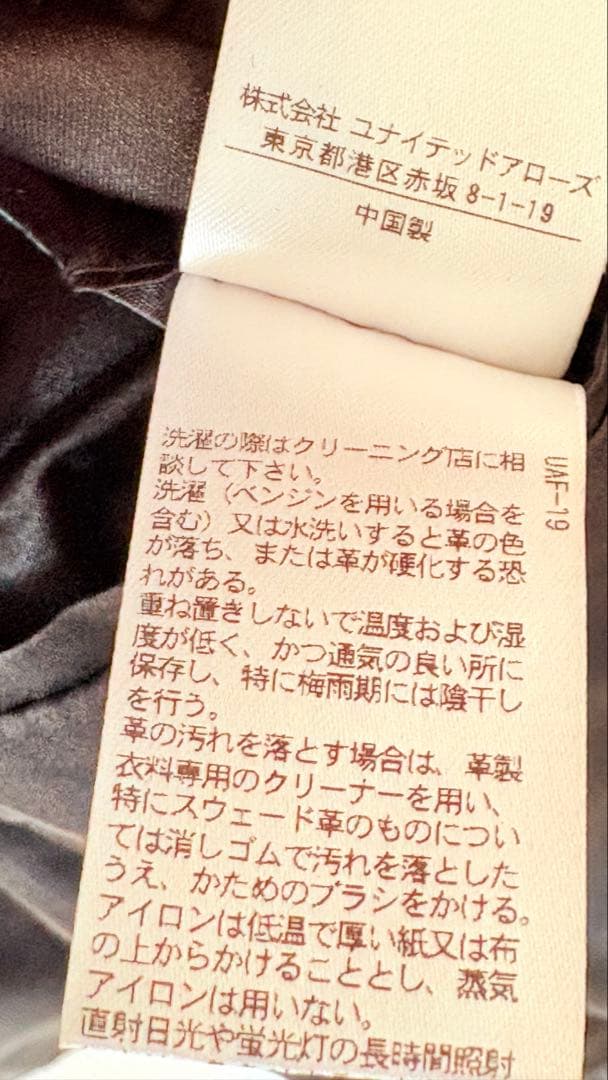 株式会社 ユナイテッドアローズ
東京都港区赤坂 8-1-19
中国製
UAF-19
洗濯の際はクリーニング店に相
談して下さい。
洗濯（ベンジンを用いる場合を
含む）又は水洗いすると革の色
が落ち、または革が硬化する恐
れがある。
重ね置きしないで温度および湿
度が低く、かつ通気の良い所に
保存し、特に梅雨期には陰干し
を行う。
革の汚れを落とす場合は、革製
衣料専用のクリーナーを用い、
特にスウェード革のものについ
ては消しゴムで汚れを落とした
うえ、かためのブラシをかける。
アイロンは低温で厚い紙又は布
の上からかけることとし、蒸気
アイロンは用いない。
直射日光や蛍光灯の長時間照射